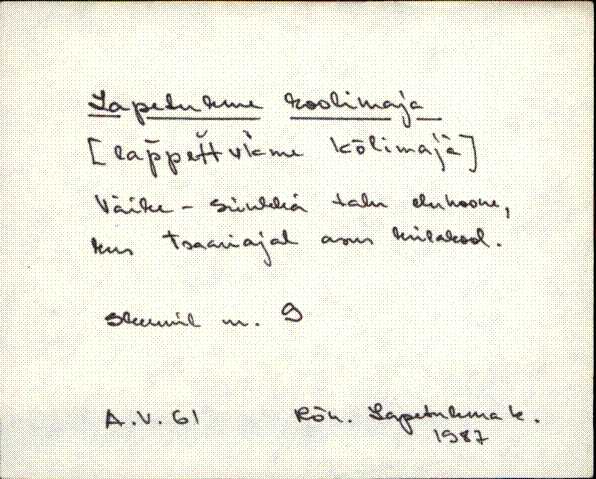 Lapetukme koolimaja
[lap̄pettukme kōlimajà]
Väike-Sünkkä talu eluhoone,
kus tsaariajal asus külakool.
skeemil nr. 9
A.V. 61 Rõu. Lapetukma k.
1987